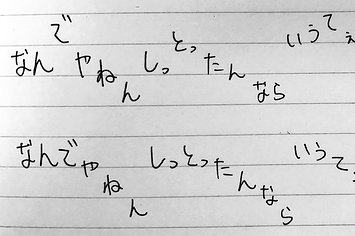 なんでやねん しっとったんなら いうてぇ
なんでやねん しっとったんなら いうてぇ